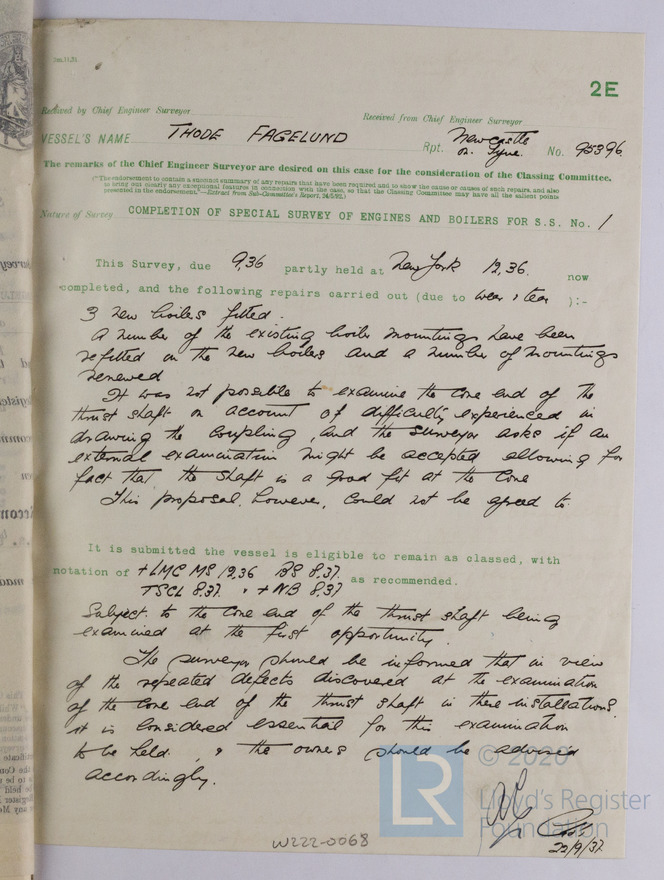 2E
Received by Chief Engineer Surveyor
Received from Chief Engineer Surveyor
VESSEL'S NAME THODE FAGELUND Rpt. Newcastle on Tyne. No. 95396
The remarks of the Chief Engineer Surveyor are desired on this case for the consideration of the Classing Committee.
("The endorsement to contain a succinct summary of any repairs that have been required and to show the cause or causes of such repairs, and also
to bring out clearly any exceptional features in connection with the case, so that the Classing Committee may have all the salient points
presented in the endorsement."—Extract from Sub-Committee's Report,
Nature of Survey COMPLETION OF SPECIAL SURVEY OF ENGINES AND BOILERS FOR S.S. No. 1
This Survey, due 9,36 partly held at New York 12,36. now
completed, and the following repairs carried out (due to wear & tear ):-
3 new boilers fitted.
A number of the existing boiler mountings have been
refitted on the new boilers and a number of mountings
renewed
It was not possible to examine the cone end of the
thrust shaft on account of difficulty experienced in
drawing the coupling, and the surveyor asks if an
external examination might be accepted allowing for
fact that the shaft is a good fit at the cone
This proposal, however, could not be agreed to.
It is submitted the vessel is eligible to remain as classed, with
notation of +LMC MS 12,36 BS 8,37.
TSCL 8,37. & +NB 8,37 as recommended.
Subject to the cone end of the thrust shaft being
examined at the first opportunity.
The surveyor should be informed that in view
of the repeated defects discovered at the examination
of the cone end of the thrust shaft in these installations,
it is considered essential for this examination
to be held, & the owners should be advised
accordingly.
22/9/37
W222-0068
LR © 2020
Lloyd's Register
Foundation